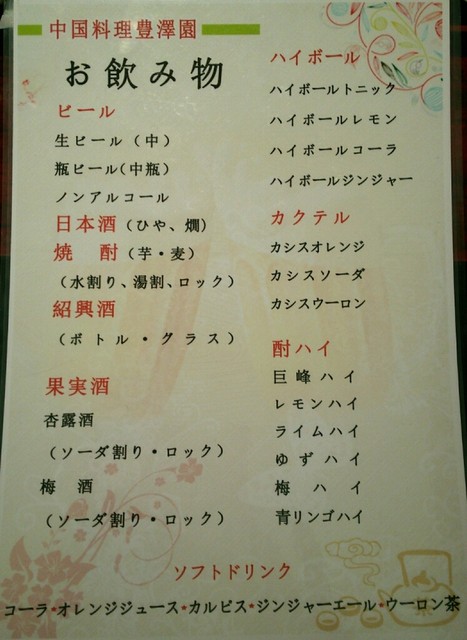 中国料理豊澤園
お飲み物
ビール
生ビール(中)
瓶ビール(中瓶)
ノンアルコール
日本酒(ひや、燗)
焼 酎(芋・麦)
(水割り、湯割、ロック)
紹興酒
(ボトル・グラス)
果実酒
杏露酒
(ソーダ割り・ロック)
梅 酒
(ソーダ割り・ロック)
ハイボール
ハイボールトニック
ハイボールレモン
ハイボールコーラ
ハイボールジンジャー
カクテル
カシスオレンジ
カシスソーダ
カシスウーロン
酎ハイ
巨峰ハイ
レモンハイ
ライムハイ
ゆずハイ
梅ハイ
青リンゴハイ
ソフトドリンク
コーラ*オレンジジュース*カルピス*ジンジャーエール*ウーロン茶